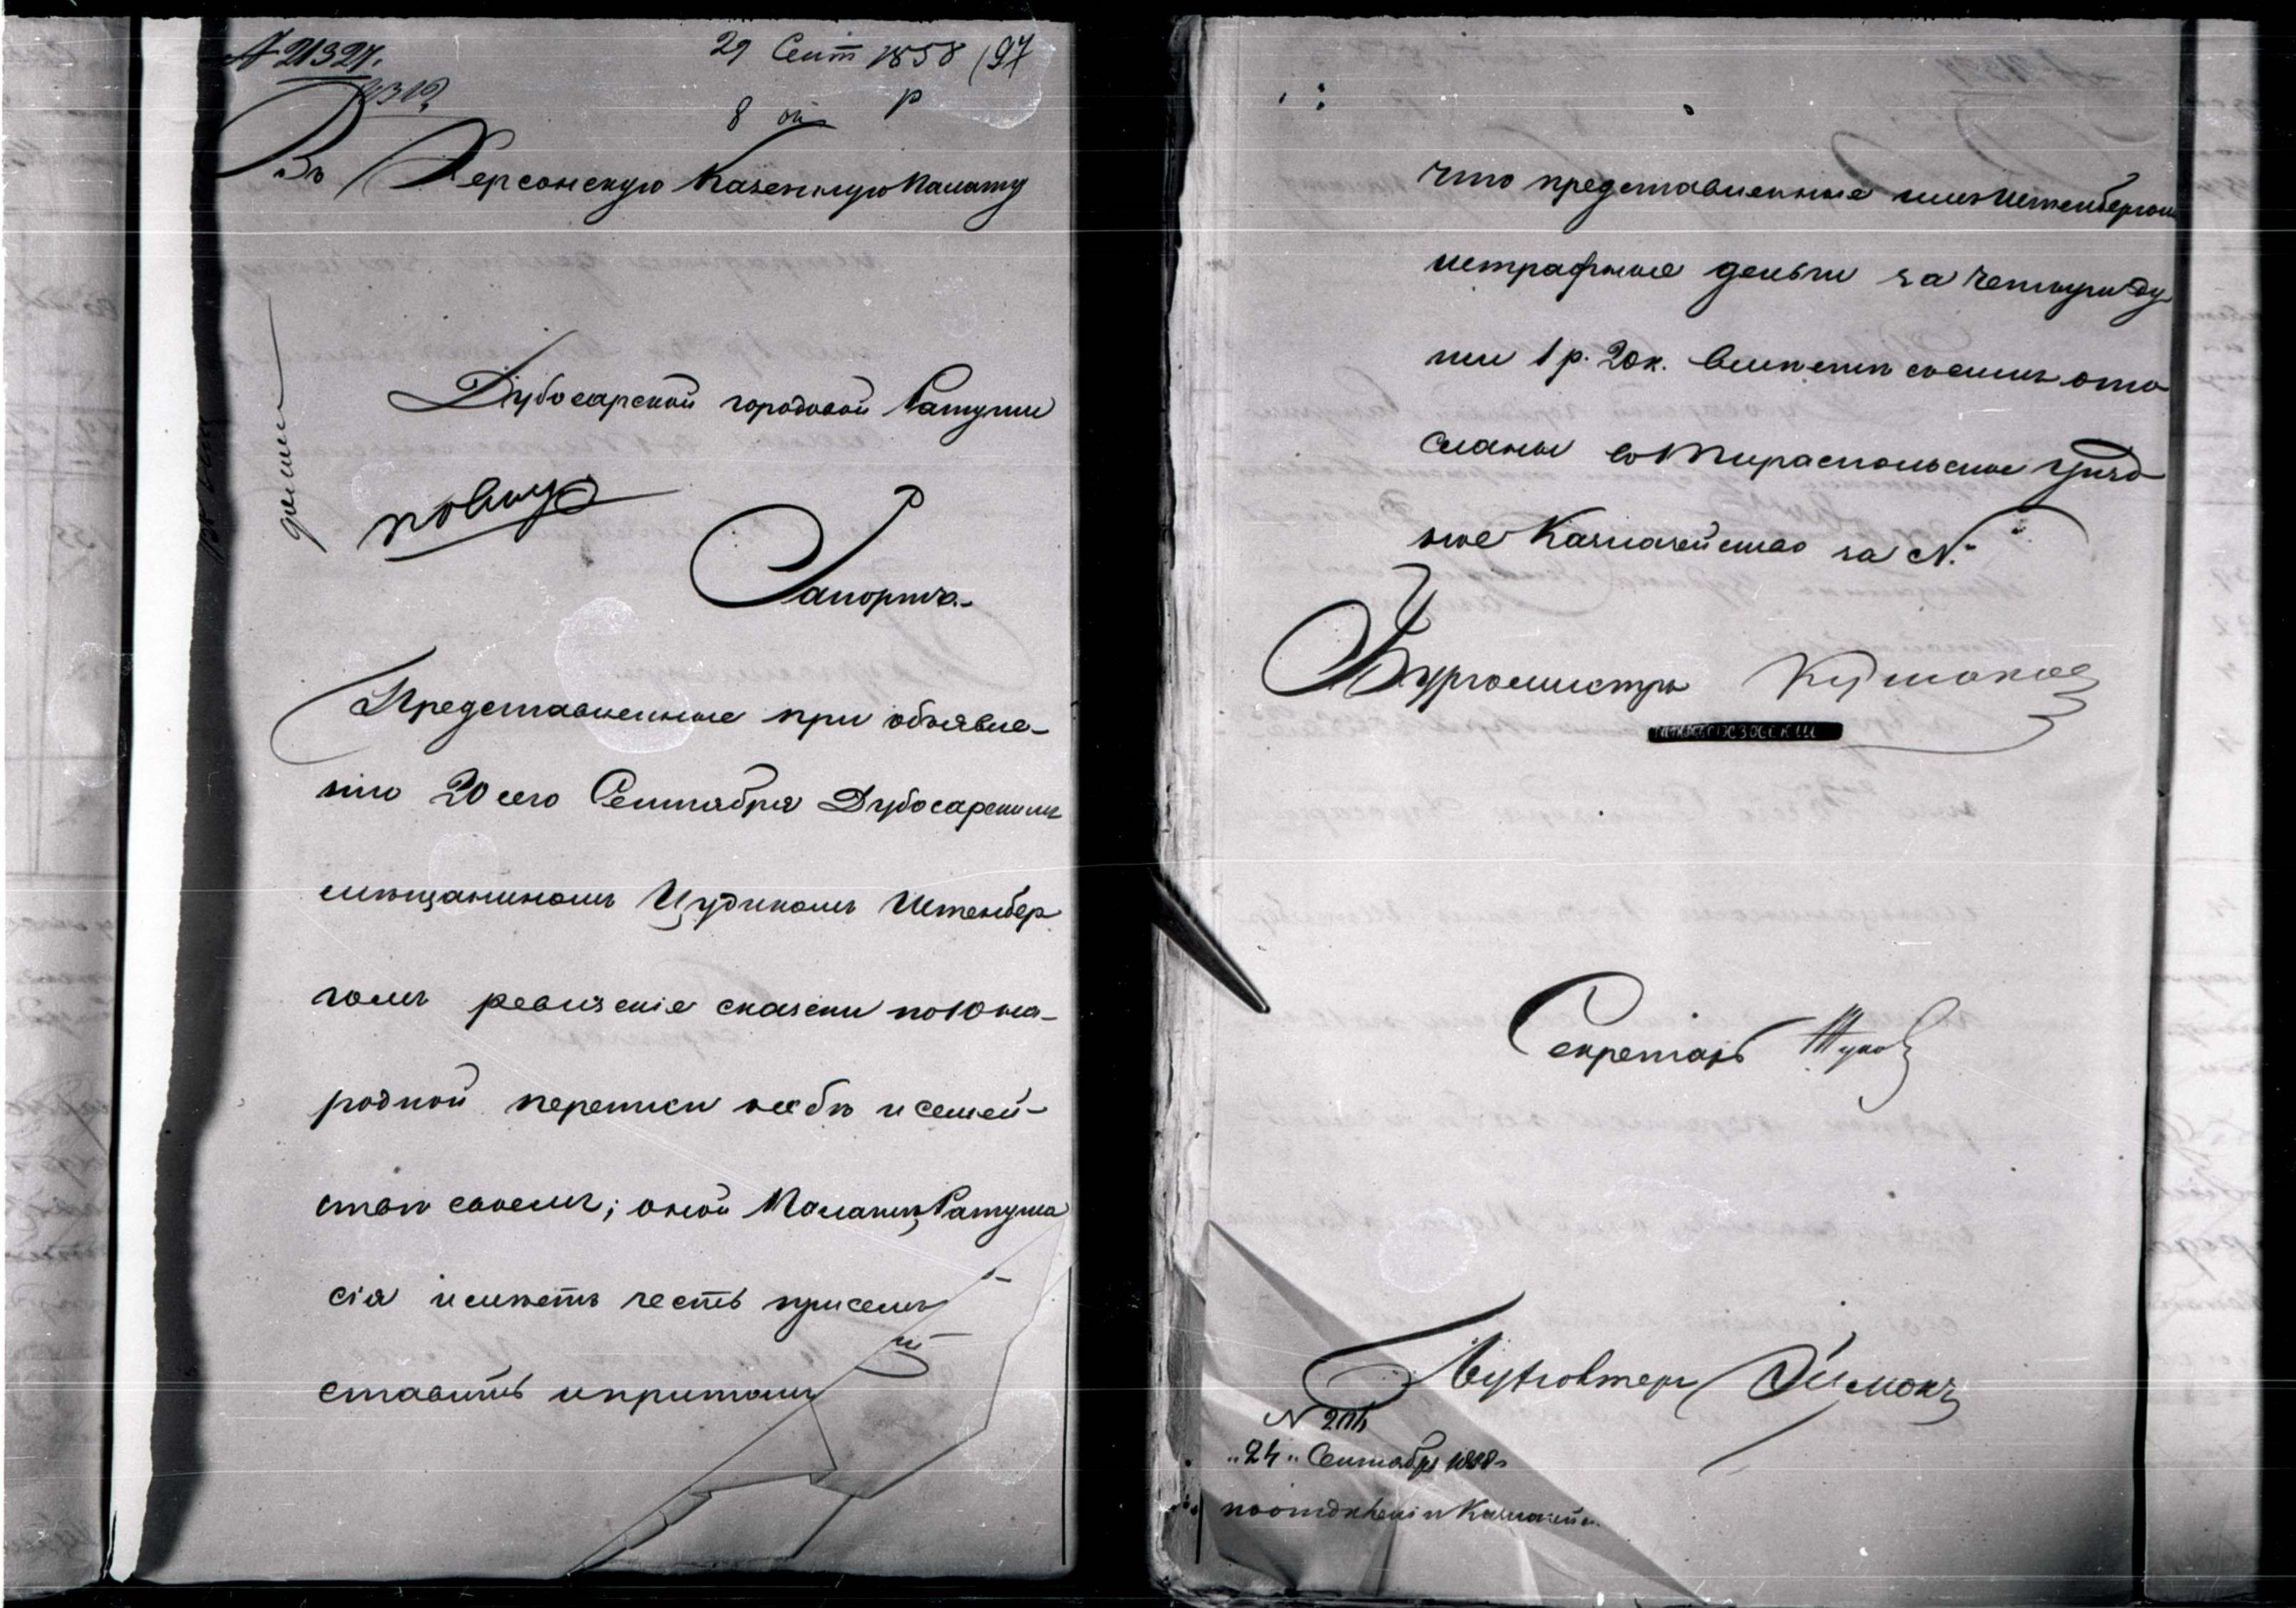 № 21327.
29 Сент 1858 197
8
Въ Херсонскую Казенную Палату
Дубосарской городовой Ратуши
Рапортъ.
Представленные при объявле-
нію 20 сего Сентября Дубосарскимъ
мѣщаниномъ Цудикомъ Штенбер
гомъ ревизскіе сказки по 10 на-
родной переписи о себѣ и семей-
ствѣ своемъ; оной Палатѣ Ратуша
сія имѣетъ честь присемъ
ставить и притомъ
что представленные имъ Штенбергомъ
штрафные деньги за четыри ду
ши 1 р. 20 к. вмѣстѣ съ симъ ото
сланы въ Тираспольское Уѣзд
ное Казначейство за №
Бургомистръ
Секретарь
Бухгалтеръ
№
"24" Сентября 1858